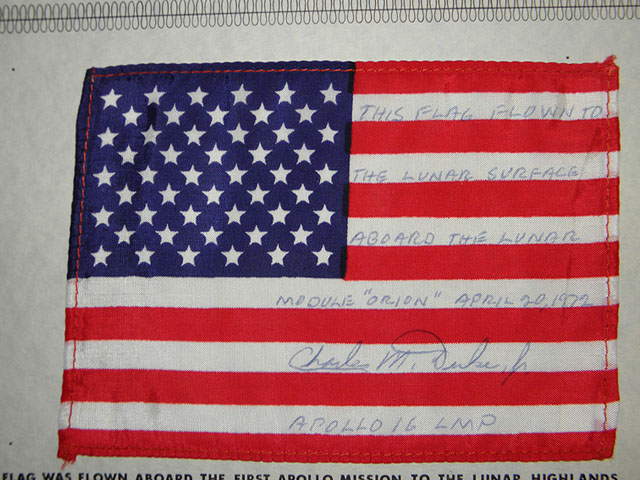 THIS FLAG FLOWN TO
THE LUNAR SURFACE
ABOARD THE LUNAR
MODULE "ORION" APRIL 20, 1972
Charles M. Duke, Jr
APOLLO 16 LMP
FLAG WAS FLOWN ABOARD THE FIRST APOLLO MISSION TO THE LUNAR HIGHLANDS